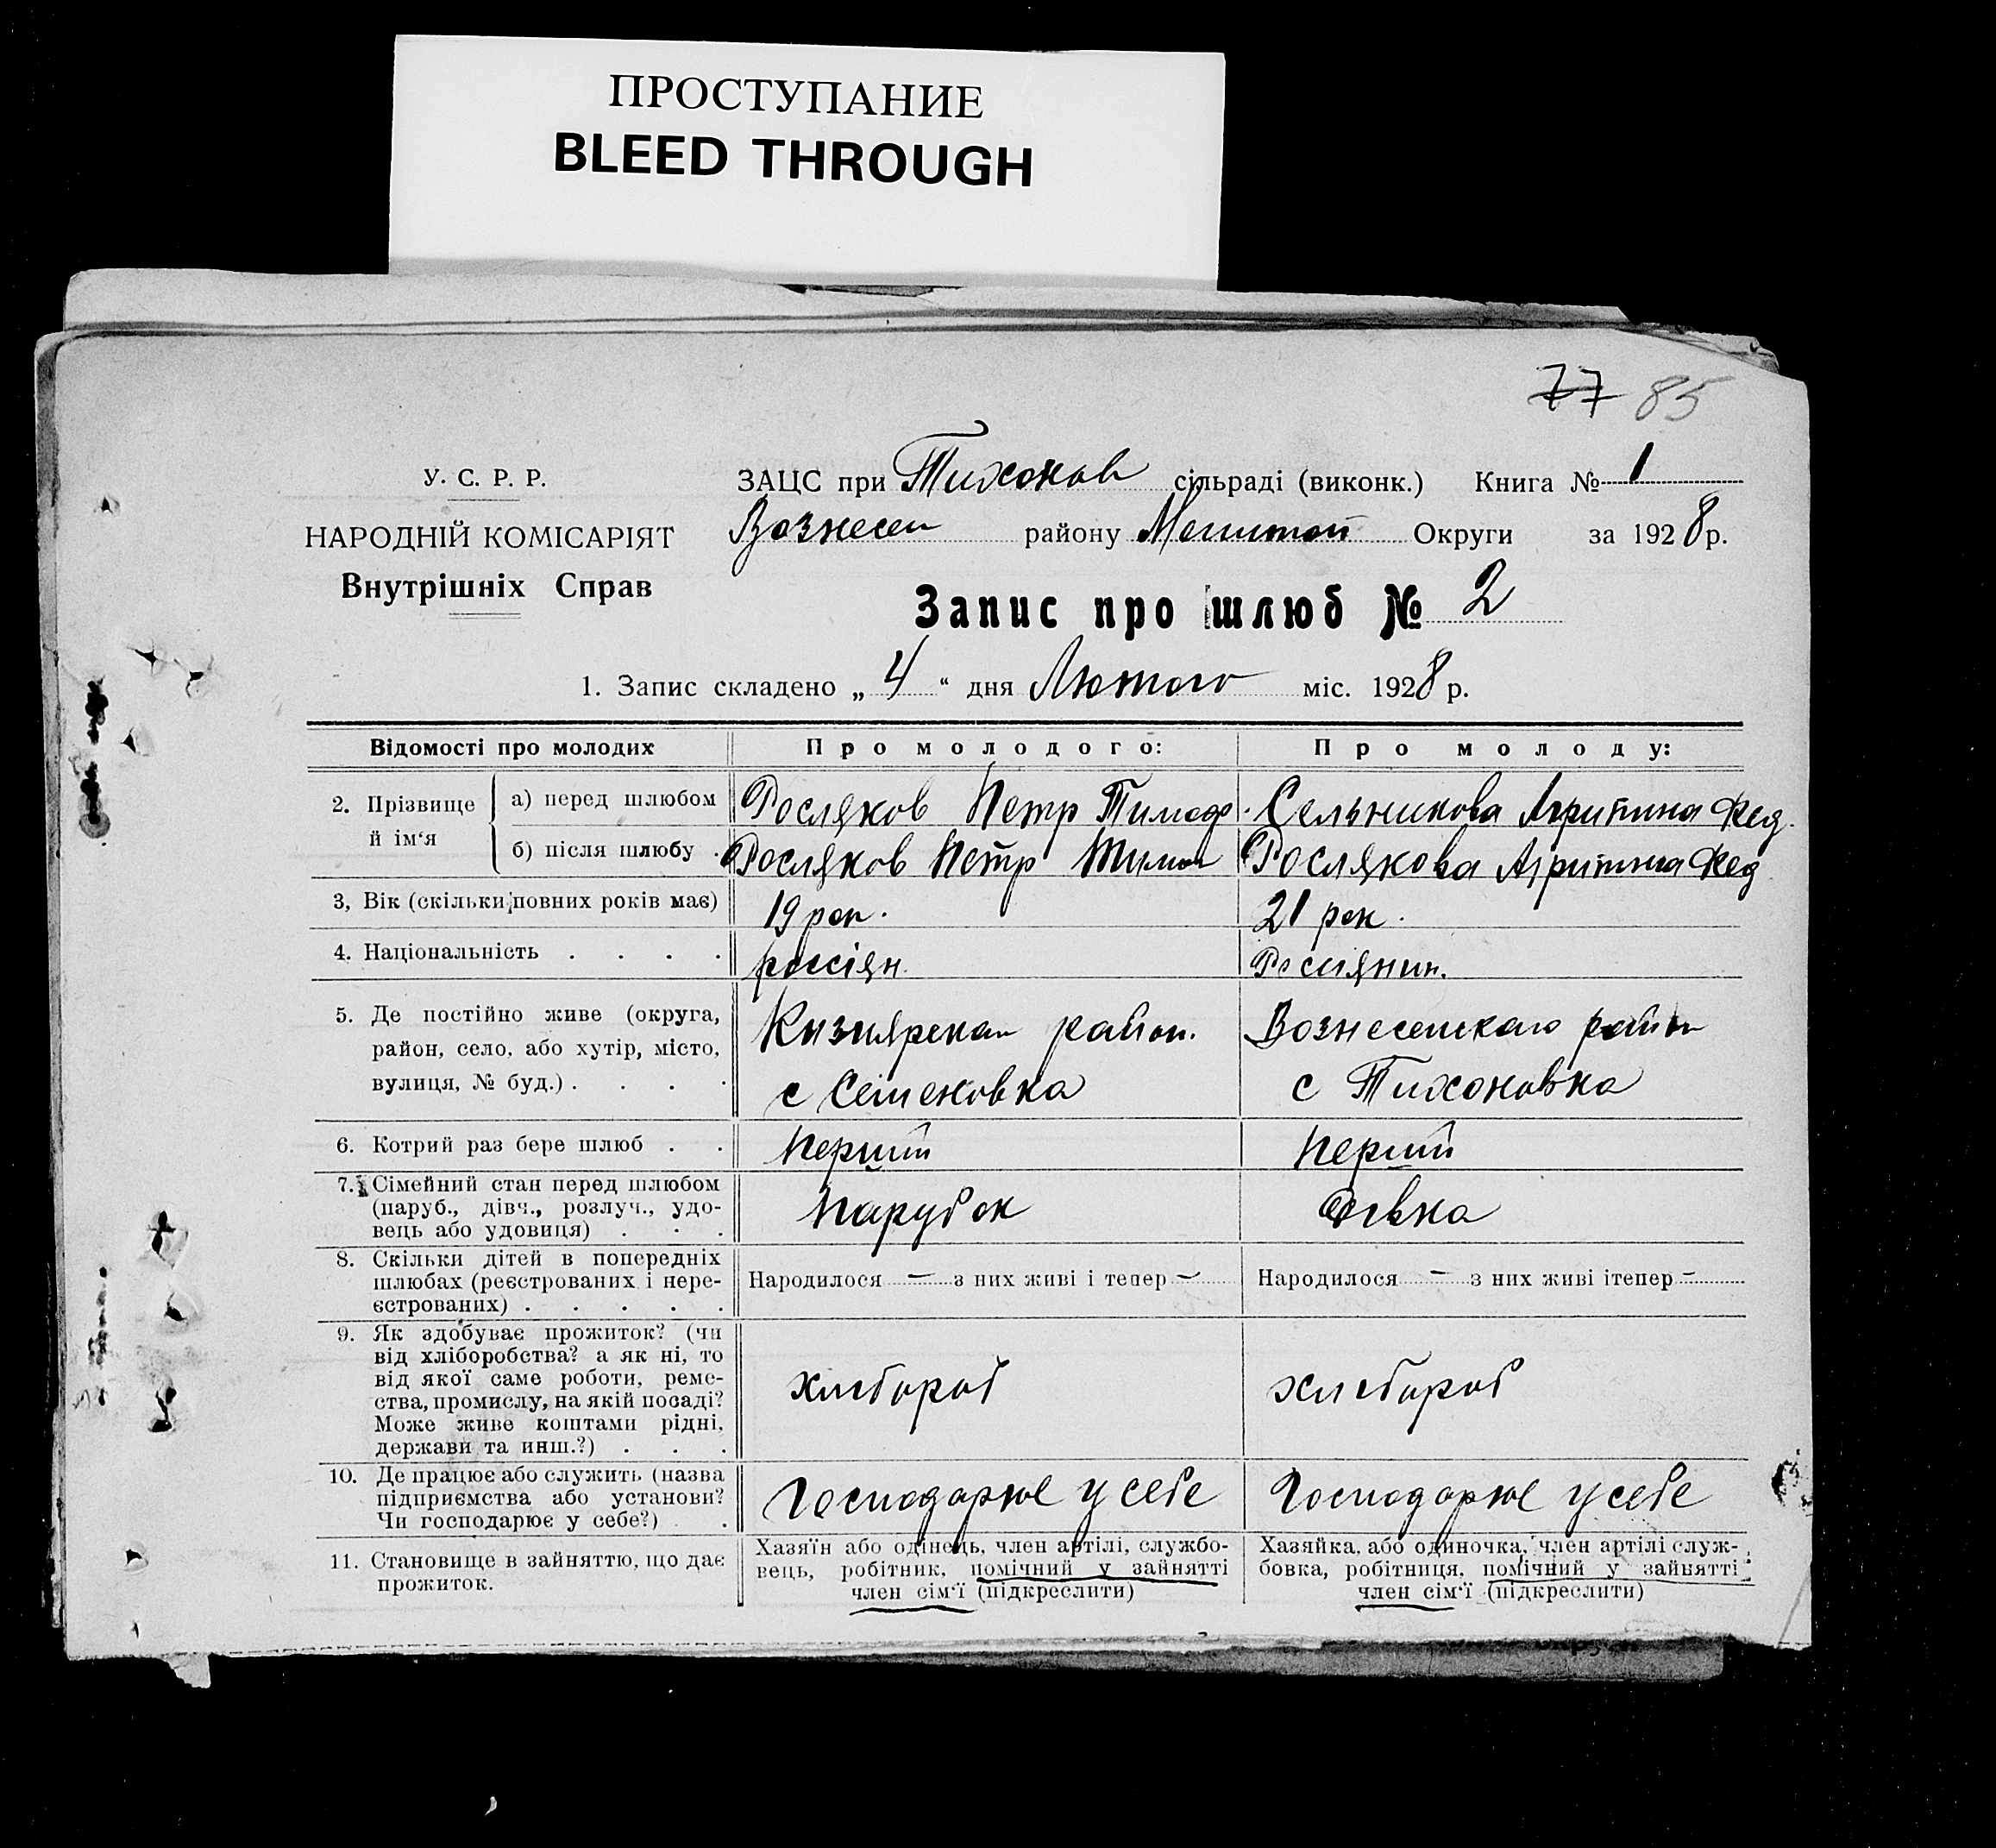 ПРОСТУПАНИЕ
BLEED THROUGH
77 85
У. С. Р. Р.
ЗАЦС при Тихонов сільраді (виконк.) Книга № 1
НАРОДНІЙ КОМІСАРІЯТ
Вознесен району Мелитоп Округи за 1928 р.
Внутрішніх Справ
Запис про шлюб № 2
1. Запис складено „ 4 “ дня Лютого міс. 1928 р.
Відомості про молодих Про молодого: Про молоду:
2. Прізвище й ім‘я
а) перед шлюбом Росляков Петр Тимоф. Сельникова Агрипина Фед.
б) після шлюбу . Росляков Петр Тимоф Рослякова Агрипина Фед
3, Вік (скільки повних років має) 19 рок. 21 рок.
4. Національність . . . . россіян. Россіянин.
5. Де постійно живе (округа,
район, село, або хутір, місто,
вулиця, № буд.) . . . .
Кизиярскаи район.
с Семеновка
Вознесенскаго район
с Тихоновка
6. Котрий раз бере шлюб . . Перший Перший
7. Сімейний стан перед шлюбом
(паруб., дівч., розлуч., удо-
вець або удовиця) . . .
Парубок Дівка
8. Скільки дітей в попередніх
шлюбах (реєстрованих і нере-
єстрованих) . . . . .
Народилося — з них живі і тепер — Народилося — з них живі ітепер —
9. Як здобуває прожиток? (чи
від хліборобства? а як ні, то
від якої саме роботи, реме-
ства, промислу, на якій посаді?
Може живе коштами рідні,
держави та инш.?) . . .
хлібороб хлібороб
10. Де працює або служить (назва
підприємства або установи?
Чи господарює у себе?) .
Господарює у себе Господарює у себе
11. Становище в зайняттю, що дає
прожиток.
Хазяїн або одінець, член артілі, службо-
вець, робітник, помічний у зайнятті
член сім‘ї (підкреслити)
Хазяйка, або одиночка, член артілі служ-
бовка, робітниця, помічний у зайнятті
член сім‘ї (підкреслити)